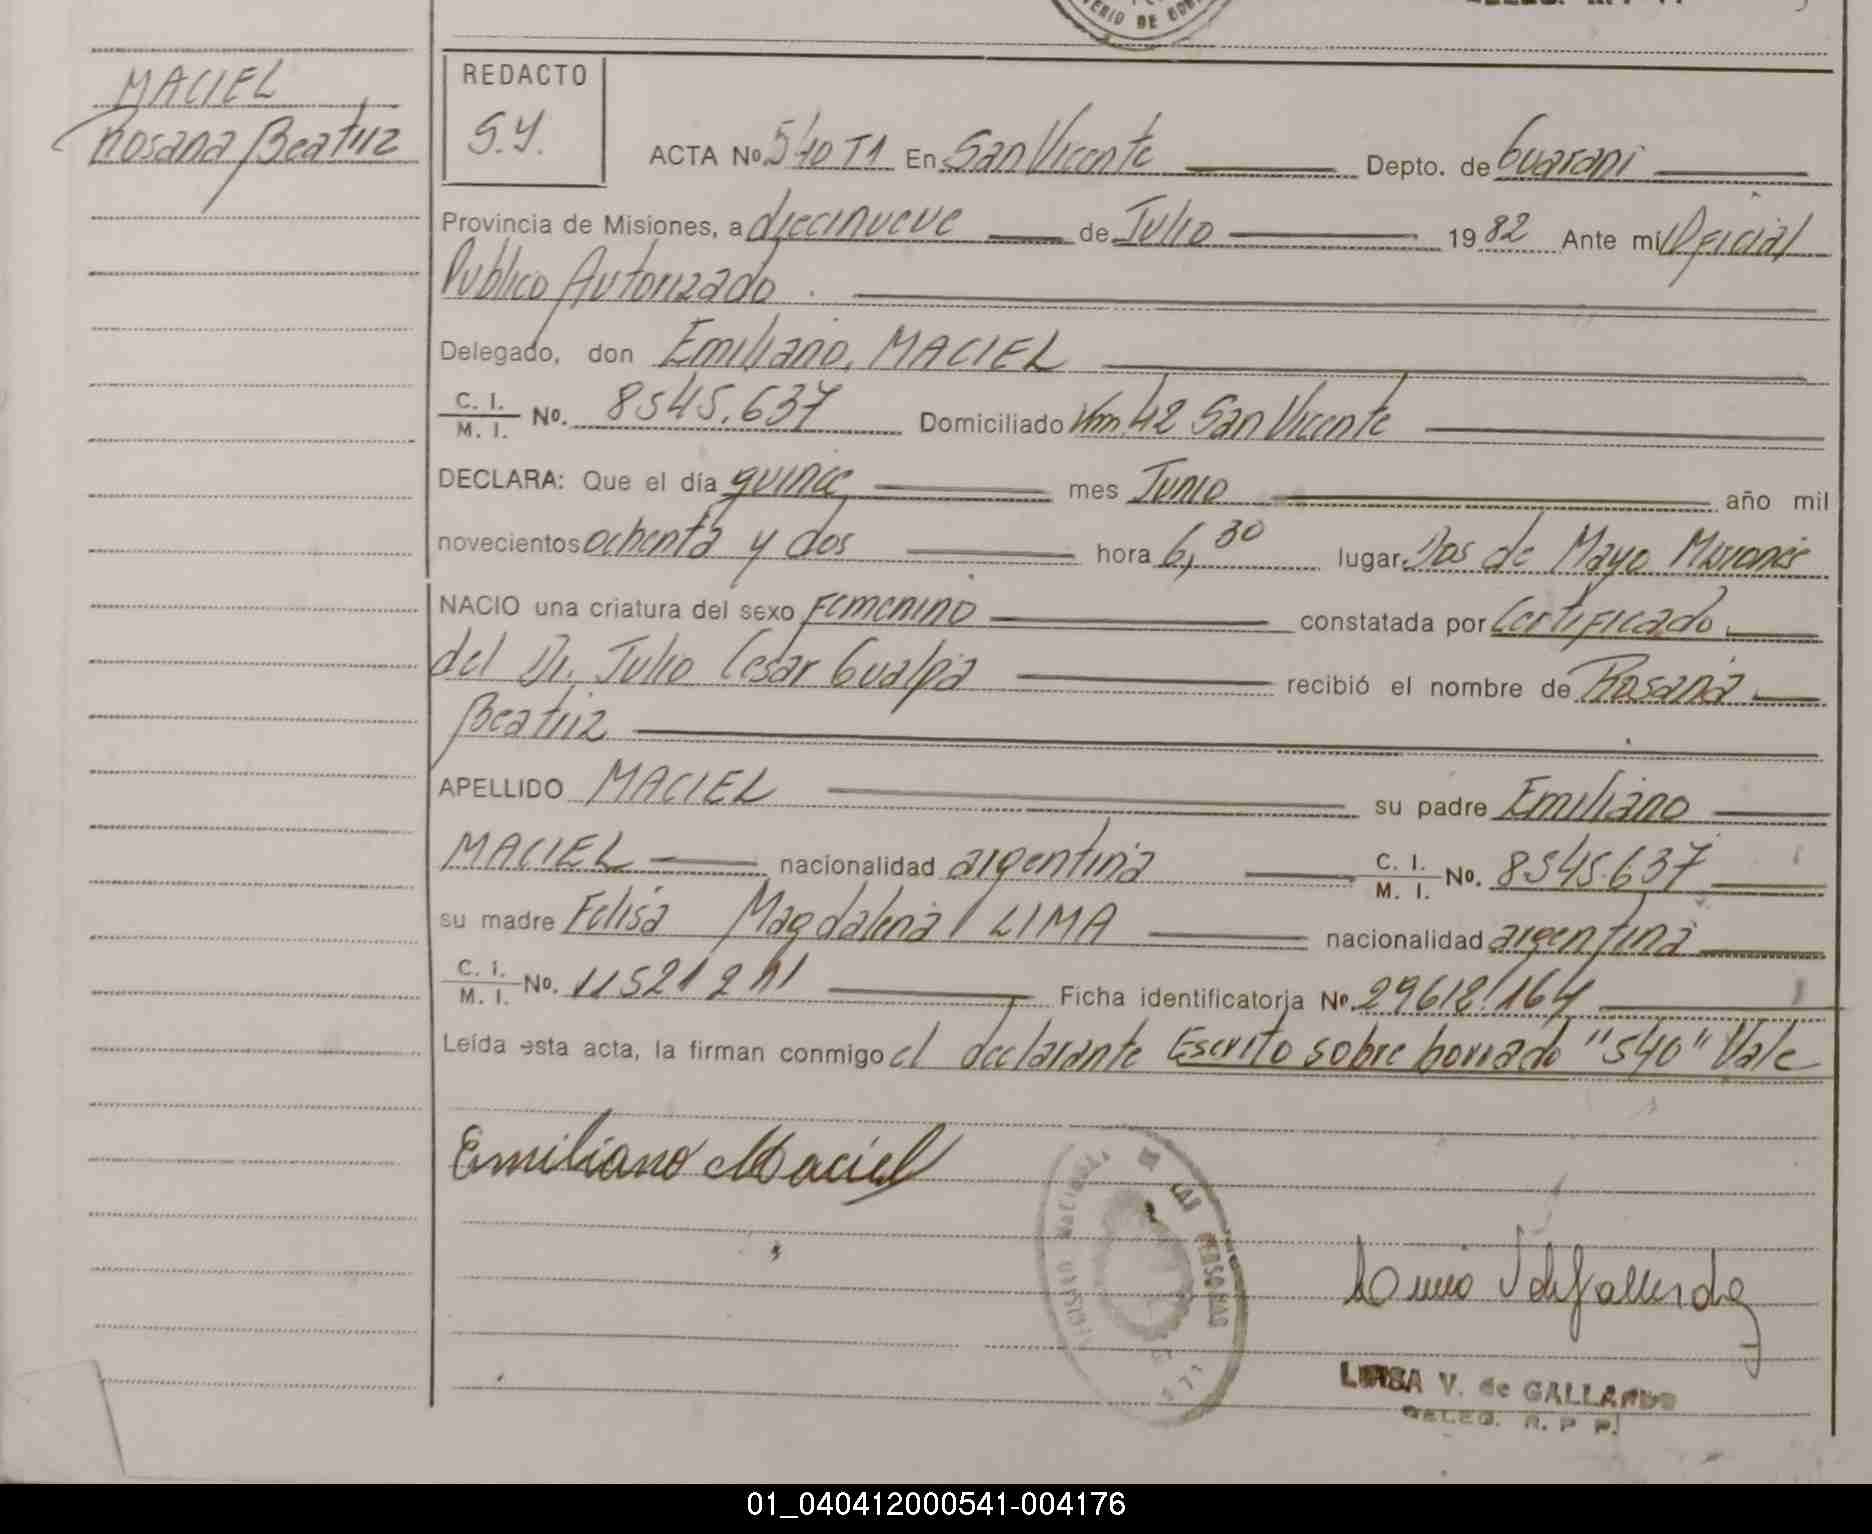 MACIEL
Rosana Beatriz
REDACTO
S.Y.
ACTA No 540 T1 En San Vicente Depto. de Guarani
Provincia de Misiones, a diecinueve de Julio 1982 Ante mi Oficial
Publico Autorizado.
Delegado, don Emiliano, MACIEL
C. I. / M. I. No. 8545.637 Domiciliado Km. 42 San Vicente
DECLARA: Que el día quince mes Junio año mil
novecientos ochenta y dos hora 6,30 lugar Dos de Mayo Misiones
NACIO una criatura del sexo Femenino constatada por Certificado
del Dr. Julio Cesar Gualpa recibió el nombre de Rosana
Beatriz
APELLIDO MACIEL su padre Emiliano
MACIEL nacionalidad argentina C. I. / M. I. No. 8545.637
su madre Felisa Magdalena LIMA nacionalidad argentina
C. I. / M. I. No. Ficha identificatoria No
Leída esta acta, la firman conmigo el declarante Escrito sobre borrado "540" Vale
Emiliano Maciel
REGISTRO NACIONAL DE LAS PERSONAS
V. de GALLARDO
DELEG. R. P. P.
01_040412000541-004176